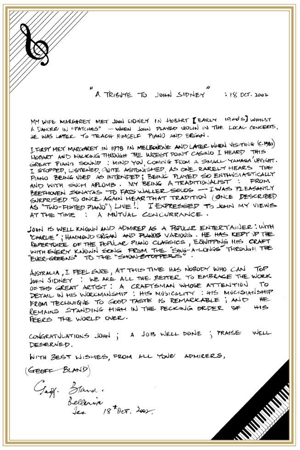 "A TRIBUTE TO JOHN SIDNEY" : 18 OCT. 2002
MY WIFE MARGARET MET JOHN SIDNEY IN HOBART [EARLY WHILST
A DANCER IN "PATCHES" — WHEN JOHN PLAYED VIOLIN IN THE LOCAL CONCERTS,
HE WAS LATER TO TEACH HIMSELF PIANO AND ORGAN.
I FIRST MET MARGARET IN 1978 IN MELBOURNE AND LATER WHEN VISITING
HOBART AND WALKING THROUGH THE WREST POINT CASINO I HEARD THIS
GREAT PIANO SOUND : MIND YOU COMING FROM A SMALL YAMAHA UPRIGHT.
I STOPPED, LISTENED, QUITE ASTONISHED, AS ONE RARELY HEARS THE
PIANO BEING USED AS INTENDED ; BEING PLAYED SO ENTHUSIASTICALLY
AND WITH SUCH APLOMB. MY BEING A TRADITIONALIST : FROM
BEETHOVEN SONATAS TO "FATS WALLER" SOLOS — I WAS PLEASANTLY
SURPRISED TO ONCE AGAIN HEAR THAT TRADITION (ONCE DESCRIBED
AS "TWO-FISTED PIANO") LIVE!. I EXPRESSED TO JOHN MY VIEWS
AT THE TIME : A MUTUAL CONCURRANCE.
JOHN IS WELL KNOWN AND ADMIRED AS A POPULAR ENTERTAINER : WITH
HAMMOND ORGAN AND PIANOS VARIOUS. HE HAS KEPT UP THE
REPERTOIRE OF THE POPULAR PIANO CLASSICS, EQUIPPING HIS CRAFT
WITH EVERY KNOWN SONG FROM THE "SING-A-LONGS" THROUGH THE
"EVER-GREENS" TO THE "SHOW-STOPPERS".
AUSTRALIA, I FEEL SURE, AT THIS TIME HAS NOBODY WHO CAN TOP
JOHN SIDNEY : WE ARE ALL THE BETTER TO EMBRACE THE WORK
OF THIS GREAT ARTIST : A CRAFTSMAN WHOSE ATTENTION TO
DETAIL IN HIS WORKMANSHIP : HIS MUSICALITY : HIS MUSICIANSHIP
FROM TECHNIQUE TO GOOD TASTE IS REMARKABLE ; AND HE
REMAINS STANDING HIGH IN THE PECKING ORDER OF HIS
PEERS THE WORLD OVER.
CONGRATULATIONS JOHN ; A JOB WELL DONE ; PRAISE WELL
DESERVED.
WITH BEST WISHES, FROM ALL YOUR ADMIRERS,
(GEOFF BLAND)
Geoff Bland.
18th Oct. 2002.